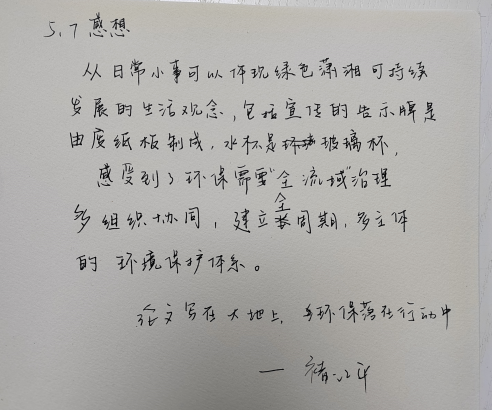 5.7 感想
从日常小事可以体现绿色潇湘可持续
发展的生活观念,包括宣传的告示牌是
由废纸板制成,水杯是玻璃杯,
感受到了环保需要“全流域”治理
多组织协同,建立全周期,多主体
的环境保护体系。
论文写在大地上,环保落在行动中
—